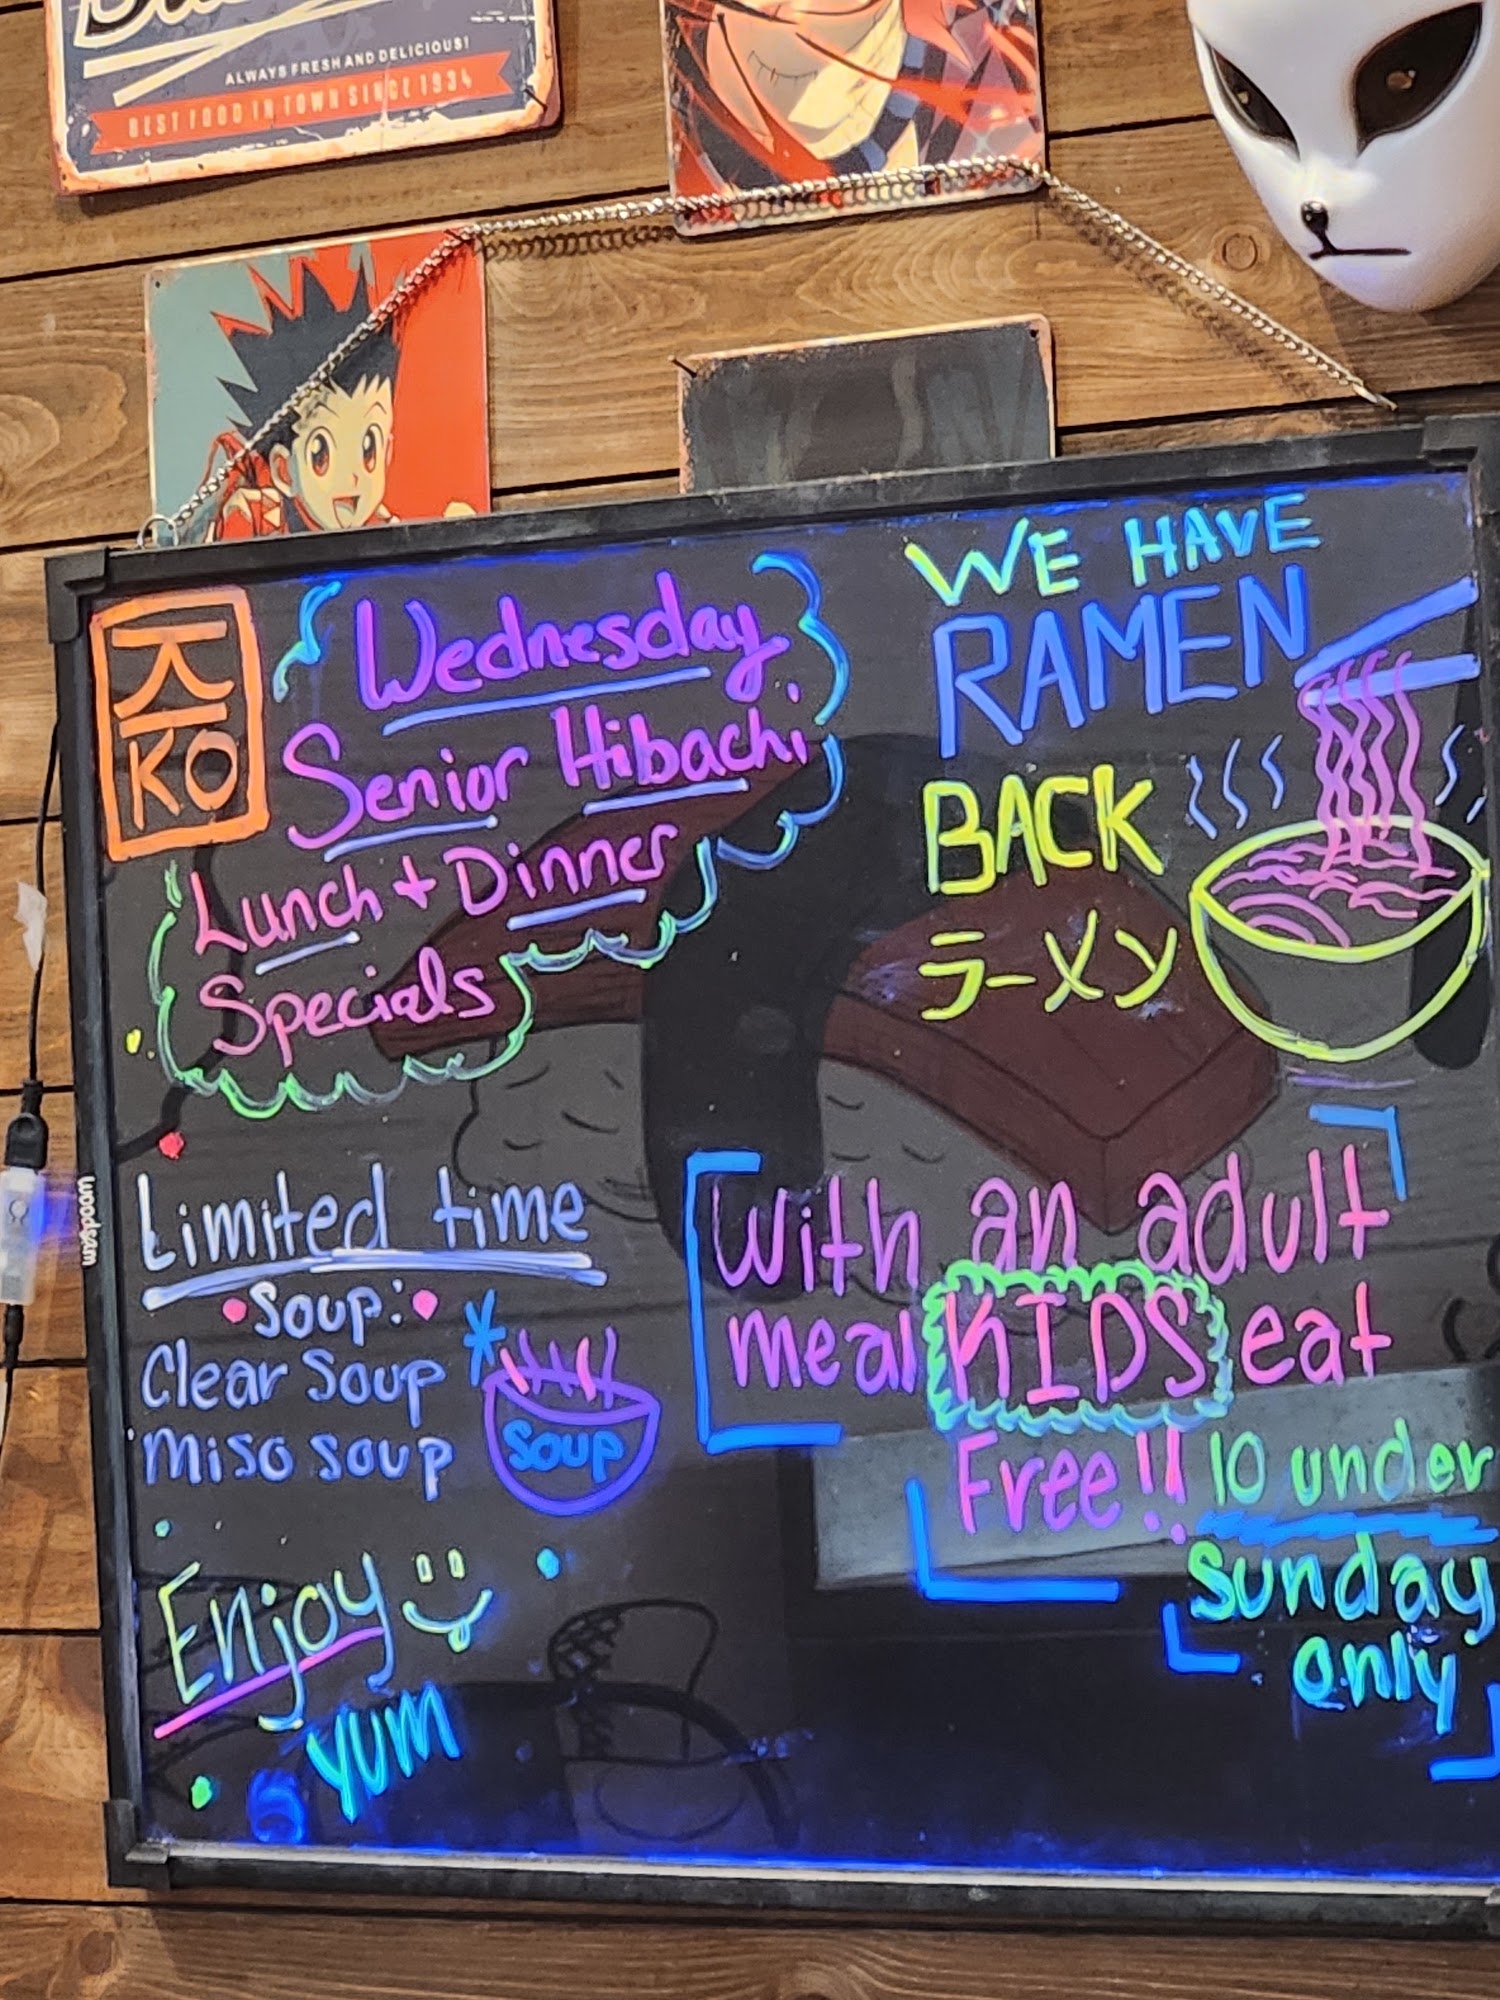 ALWAYS FRESH AND DELICIOUS!
BEST FOOD IN TOWN SINCE 1934
KO
Wednesday
Senior Hibachi
Lunch + Dinner
Specials
WE HAVE
RAMEN
BACK
ラーメン
Limited time
Soup:
Clear Soup
Miso soup
Soup
Enjoy
YUM
With an adult
meal KIDS eat
Free!! 10 under
Sunday
only
woodsam